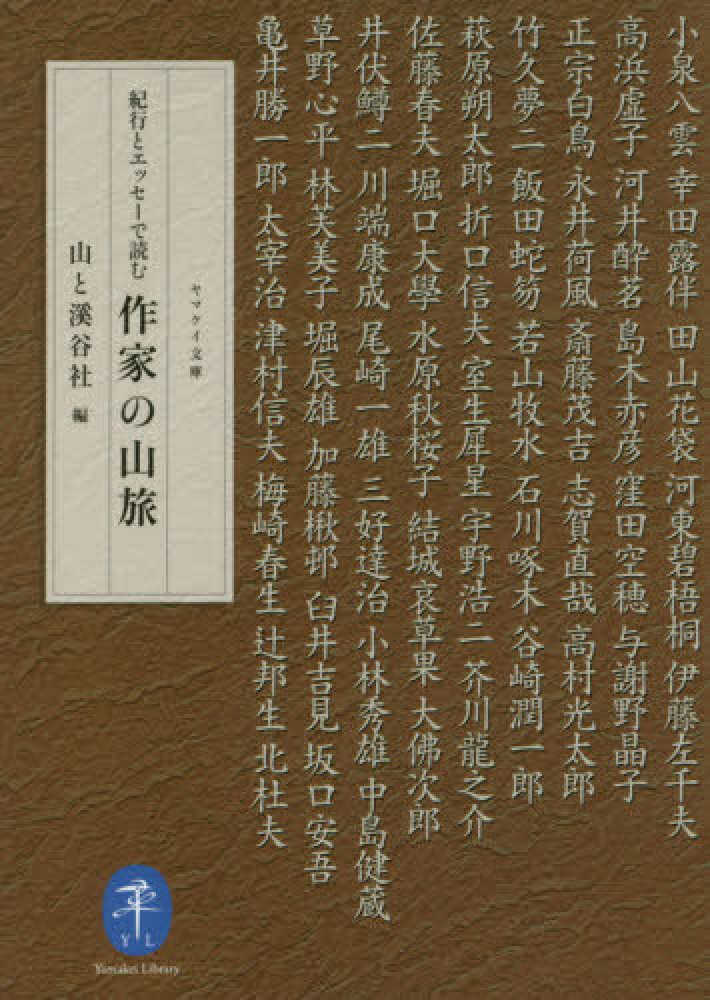 小泉八雲 幸田露伴 田山花袋 河東碧梧桐 伊藤左千夫
高浜虚子 河井酔茗 島木赤彦 窪田空穂 与謝野晶子
正宗白鳥 永井荷風 斎藤茂吉 志賀直哉 高村光太郎
竹久夢二 飯田蛇笏 若山牧水 石川啄木 谷崎潤一郎
萩原朔太郎 折口信夫 室生犀星 宇野浩二 芥川龍之介
佐藤春夫 堀口大學 水原秋桜子 結城哀草果 大佛次郎
井伏鱒二 川端康成 尾崎一雄 三好達治 小林秀雄 中島健蔵
草野心平 林芙美子 堀辰雄 加藤楸邨 臼井吉見 坂口安吾
亀井勝一郎 太宰治 津村信夫 梅崎春生 辻邦生 北杜夫
ヤマケイ文庫
紀行とエッセーで読む
作家の山旅
山と溪谷社 編
Y L
Yamakei Library